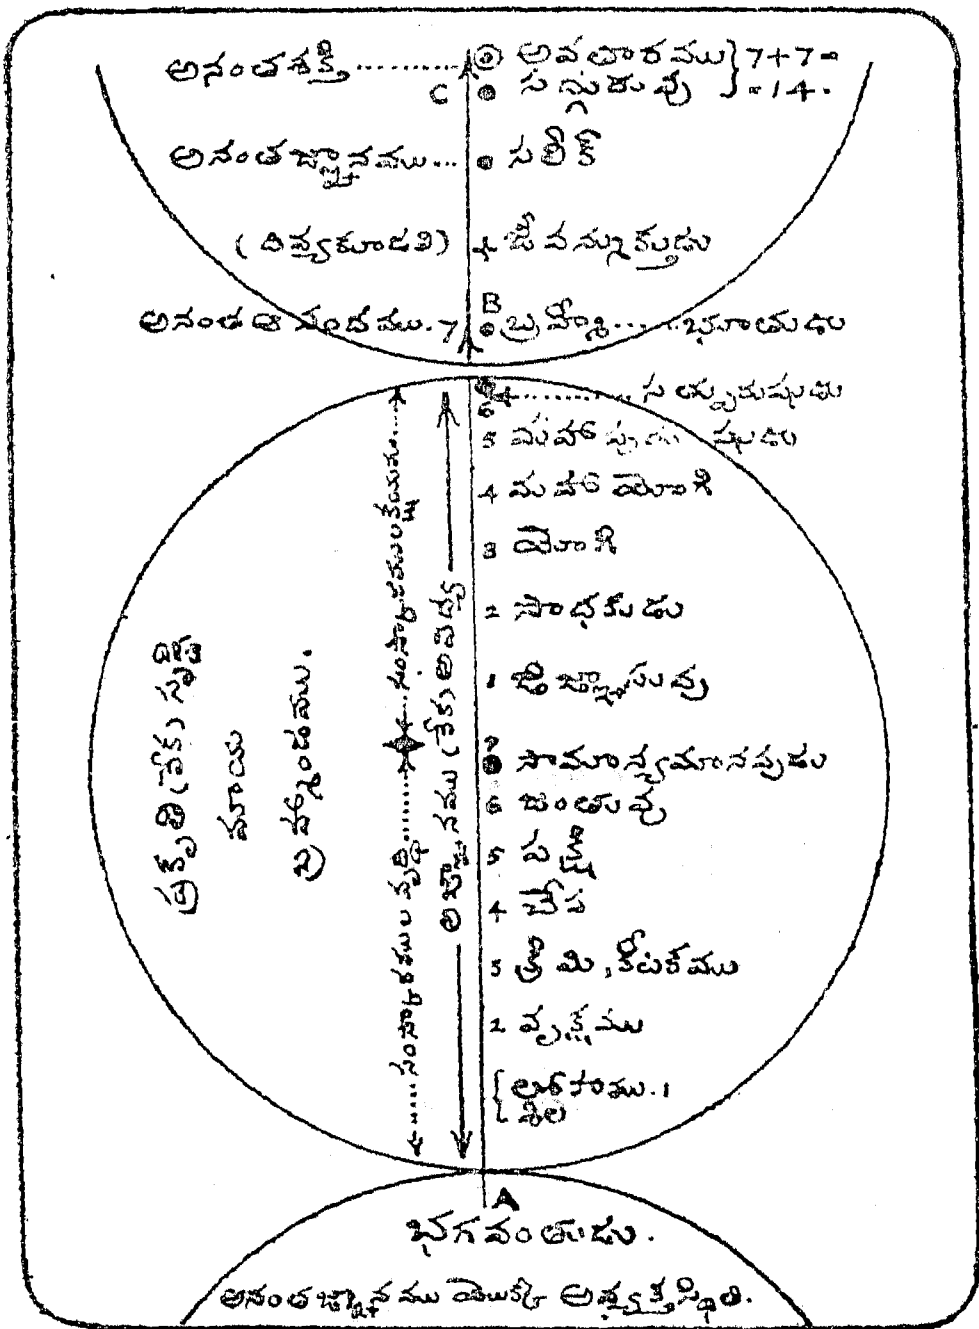 అనంతశక్తి .......... అవతారము } 7+7=
C సద్గురువు } =14.
అనంతజ్ఞానము... సలీక్
(దివ్యకూడలి) జీవన్ముక్తుడు
B
అనంత ఆనందము. 7 బ్రహ్మీ......భూతుడు
6 ............ సత్పురుషుడు
5 మహాపురుషుడు
4 మహాయోగి
3 యోగి
2 సాధకుడు
1 జిజ్ఞాసువు
7 సామాన్యమానవుడు
6 జంతువు
5 పక్షి
4 చేప
3 క్రిమి, కీటకము
2 వృక్షము
{ లోహము. 1
శిల
ప్రకృతి (లేక) సృష్టి
మాయ
బ్రహ్మాండము.
.....సంస్కారముల వృద్ధి..........సంస్కారములక్షయము.....
అజ్ఞానము (లేక) అవిద్య
A
భగవంతుడు.
అనంతజ్ఞానము యొక్క అవ్యక్తస్థితి.